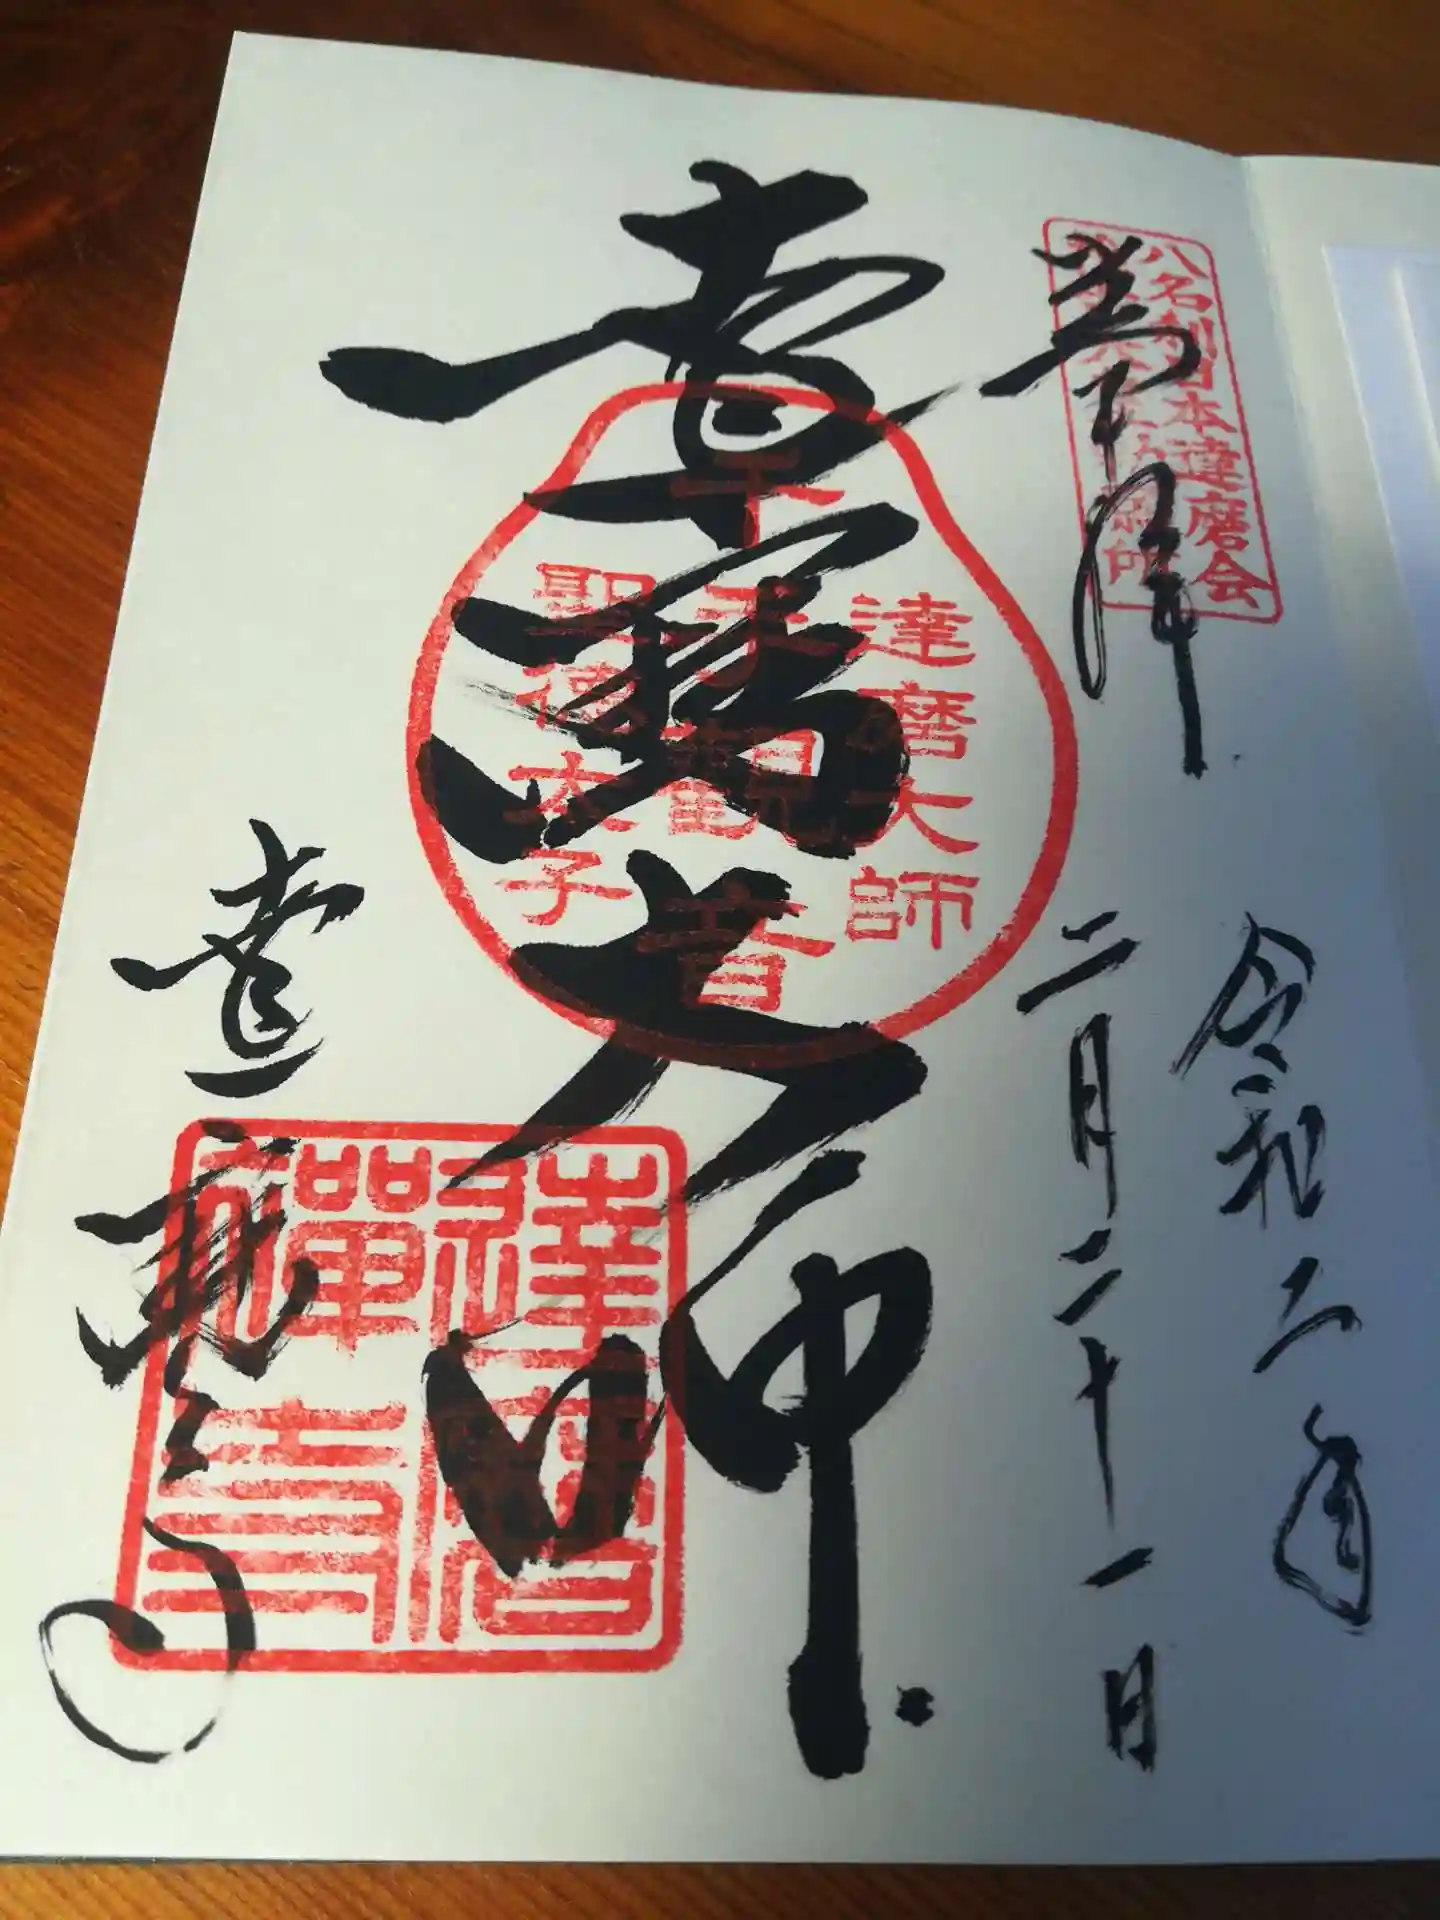 八名刹日本達磨会
奉拝
令和二年
二月二十一日
達磨大師
達磨大師
千手観音
聖徳太子
達磨寺
達磨禅寺